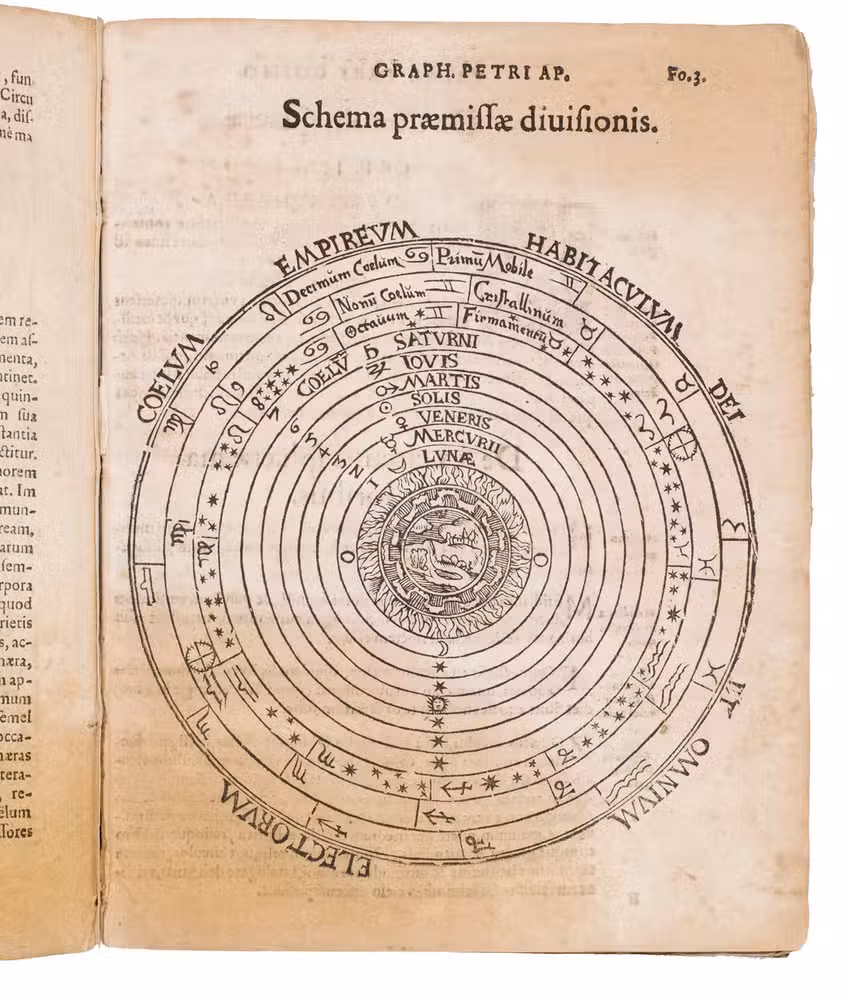 , fun
Circu
a, dis-
nè ma
em re-
em as-
menta,
tinet.
quin-
n sua
stantia
ctitur.
norem
at. Im
mun-
ream,
arum
sem-
rpora
quod
rietis
s, ac-
hæra,
n ap-
mum
semel
occa-
hæras
tera-
, re-
ëlum
ssores
GRAPH. PETRI AP.
Fo.3.
Schema præmissæ diuisionis.
COELVM EMPIREVM HABITACVLVM DEI ET OMNIVM ELECTORVM
Decimum Coelum ♋ Primũ Mobile ♊
Nonũ Coelum ♊ Cristallinum
Octauum ♊ Firmamentũ ♉
COELṼ ♄ SATVRNI
♃ IOVIS
♂ MARTIS
☉ SOLIS
♀ VENERIS
☿ MERCVRII
☽ LVNÆ
8
7
6
5
4
3
2
1